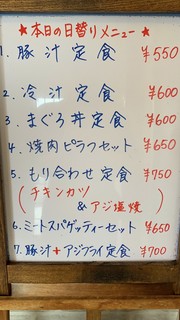 ★本日の日替りメニュー★
1. 豚汁定食 ¥550
2. 冷汁定食 ¥600
3. まぐろ丼定食 ¥600
4. 焼肉ピラフセット ¥650
5. もり合わせ定食 ¥750
(チキンカツ
&アジ塩焼)
6. ミートスパゲッティーセット ¥650
7. 豚汁+アジフライ定食 ¥700